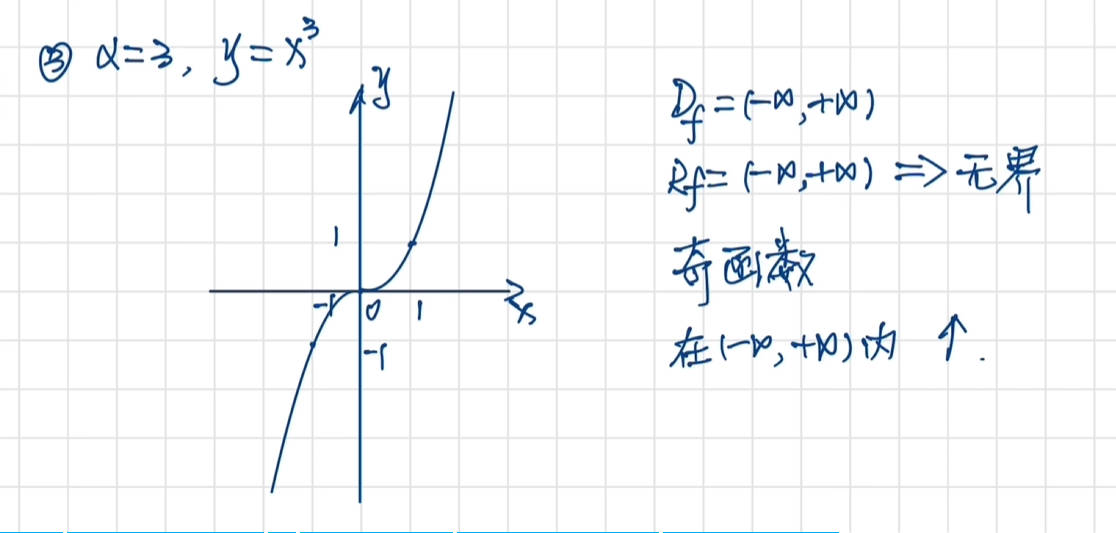 ③ α=3, y=x³
y
1
-1 0 1 x
-1
D_f=(-∞,+∞)
R_f=(-∞,+∞) => 无界
奇函数
在(-∞,+∞)内 ↑.